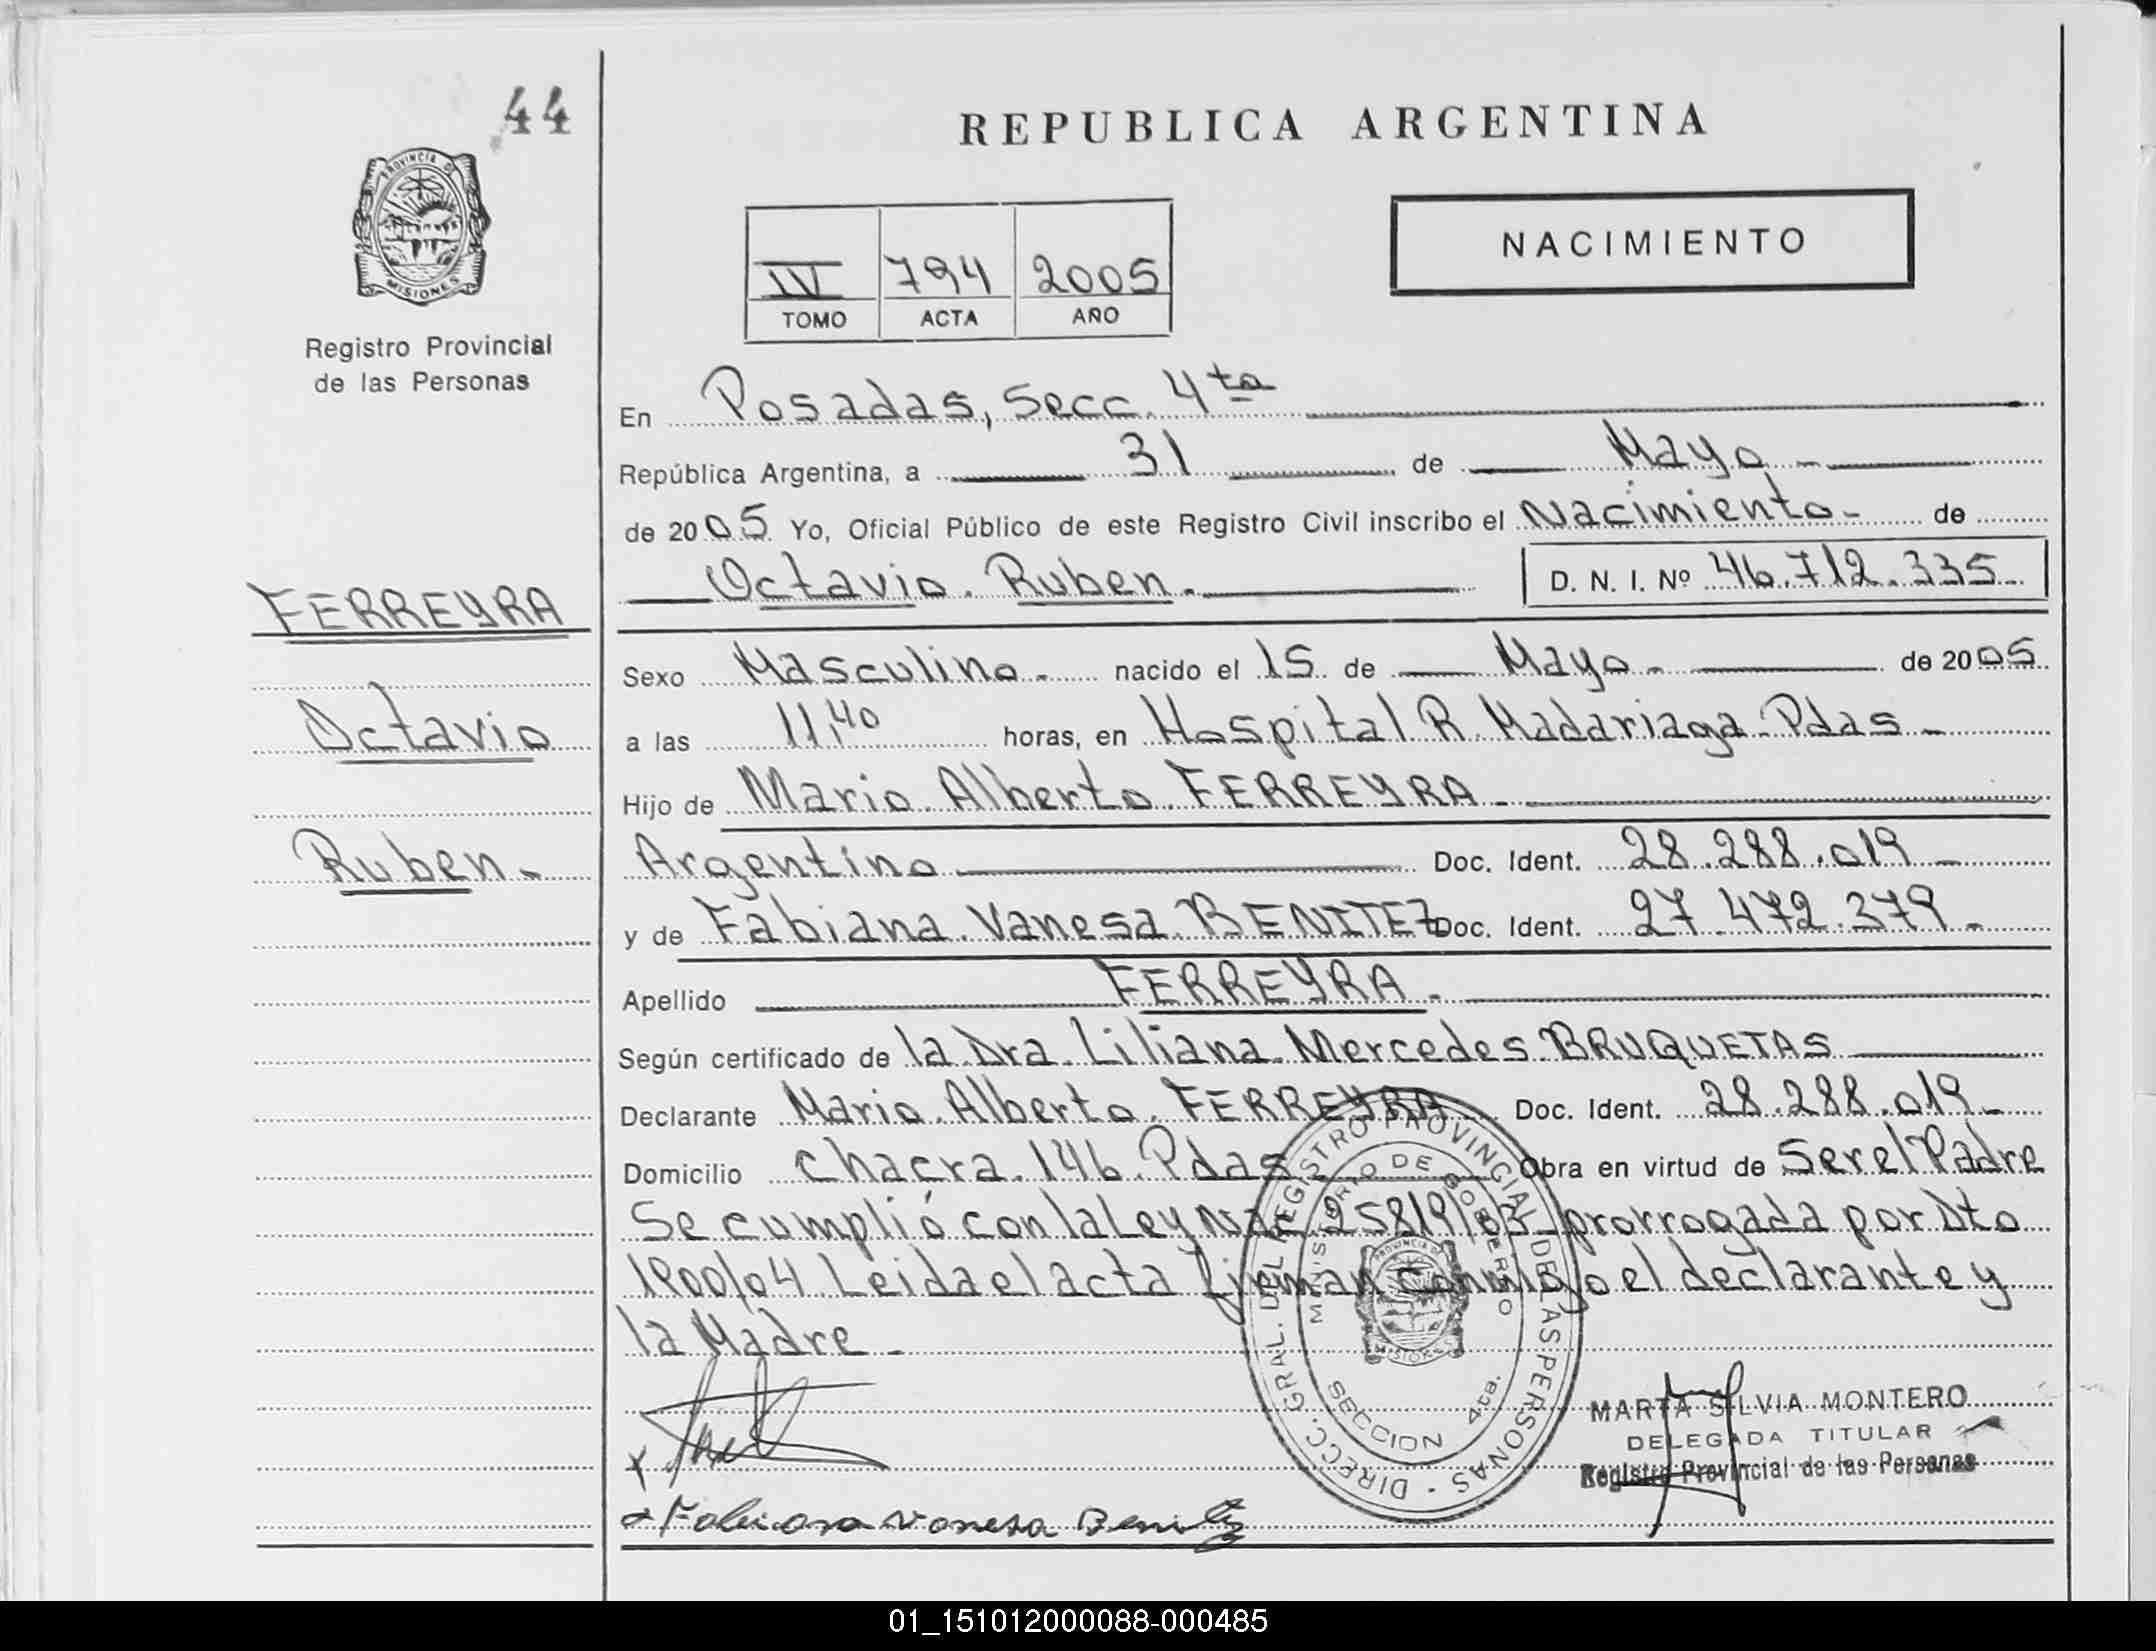 44
PROVINCIA DE
MISIONES
Registro Provincial
de las Personas
FERREYRA
Octavio
Ruben.
REPUBLICA ARGENTINA
NACIMIENTO
IV 794 2005
TOMO ACTA AÑO
En Posadas, Secc. 4ta
República Argentina, a 31 de Mayo
de 2005 Yo, Oficial Público de este Registro Civil inscribo el Nacimiento de
Octavio Ruben. D. N. I. Nº 46.712.335
Sexo Masculino nacido el 15 de Mayo de 2005
a las 11,40 horas, en Hospital R. Madariaga Pdas
Hijo de Mario Alberto FERREYRA
Argentino Doc. Ident. 28.288.019
y de Fabiana Vanesa BENITEZ Doc. Ident. 27.472.379.
Apellido FERREYRA.
Según certificado de la Dra. Liliana Mercedes BRUQUETAS
Declarante Mario Alberto FERREYRA Doc. Ident. 28.288.019
Domicilio chacra 146 Pdas Obra en virtud de Ser el Padre
Se cumplió con la Ley Nac. 25819/03 prorrogada por Dto
1900/04 Leida el acta firman conmigo el declarante y
la Madre
DIRECC. GRAL. DEL REGISTRO PROVINCIAL DE LAS PERSONAS
MINISTERIO DE GOBIERNO
SECCION 4ta.
MARTA SILVIA MONTERO
DELEGADA TITULAR
Registro Provincial de las Personas
Fabiana Vanesa Benitez
01_151012000088-000485